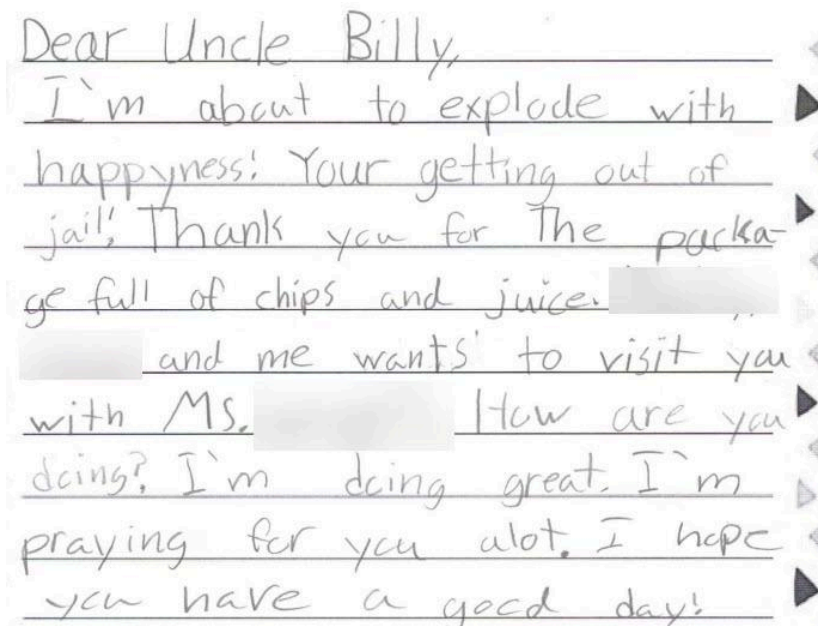 Dear Uncle Billy,
I'm about to explode with
happyness! Your getting out of
jail! Thank you for The packa-
ge full of chips and juice.
and me wants to visit you
with Ms. How are you
doing? I'm doing great. I'm
praying for you alot. I hope
you have a good day!